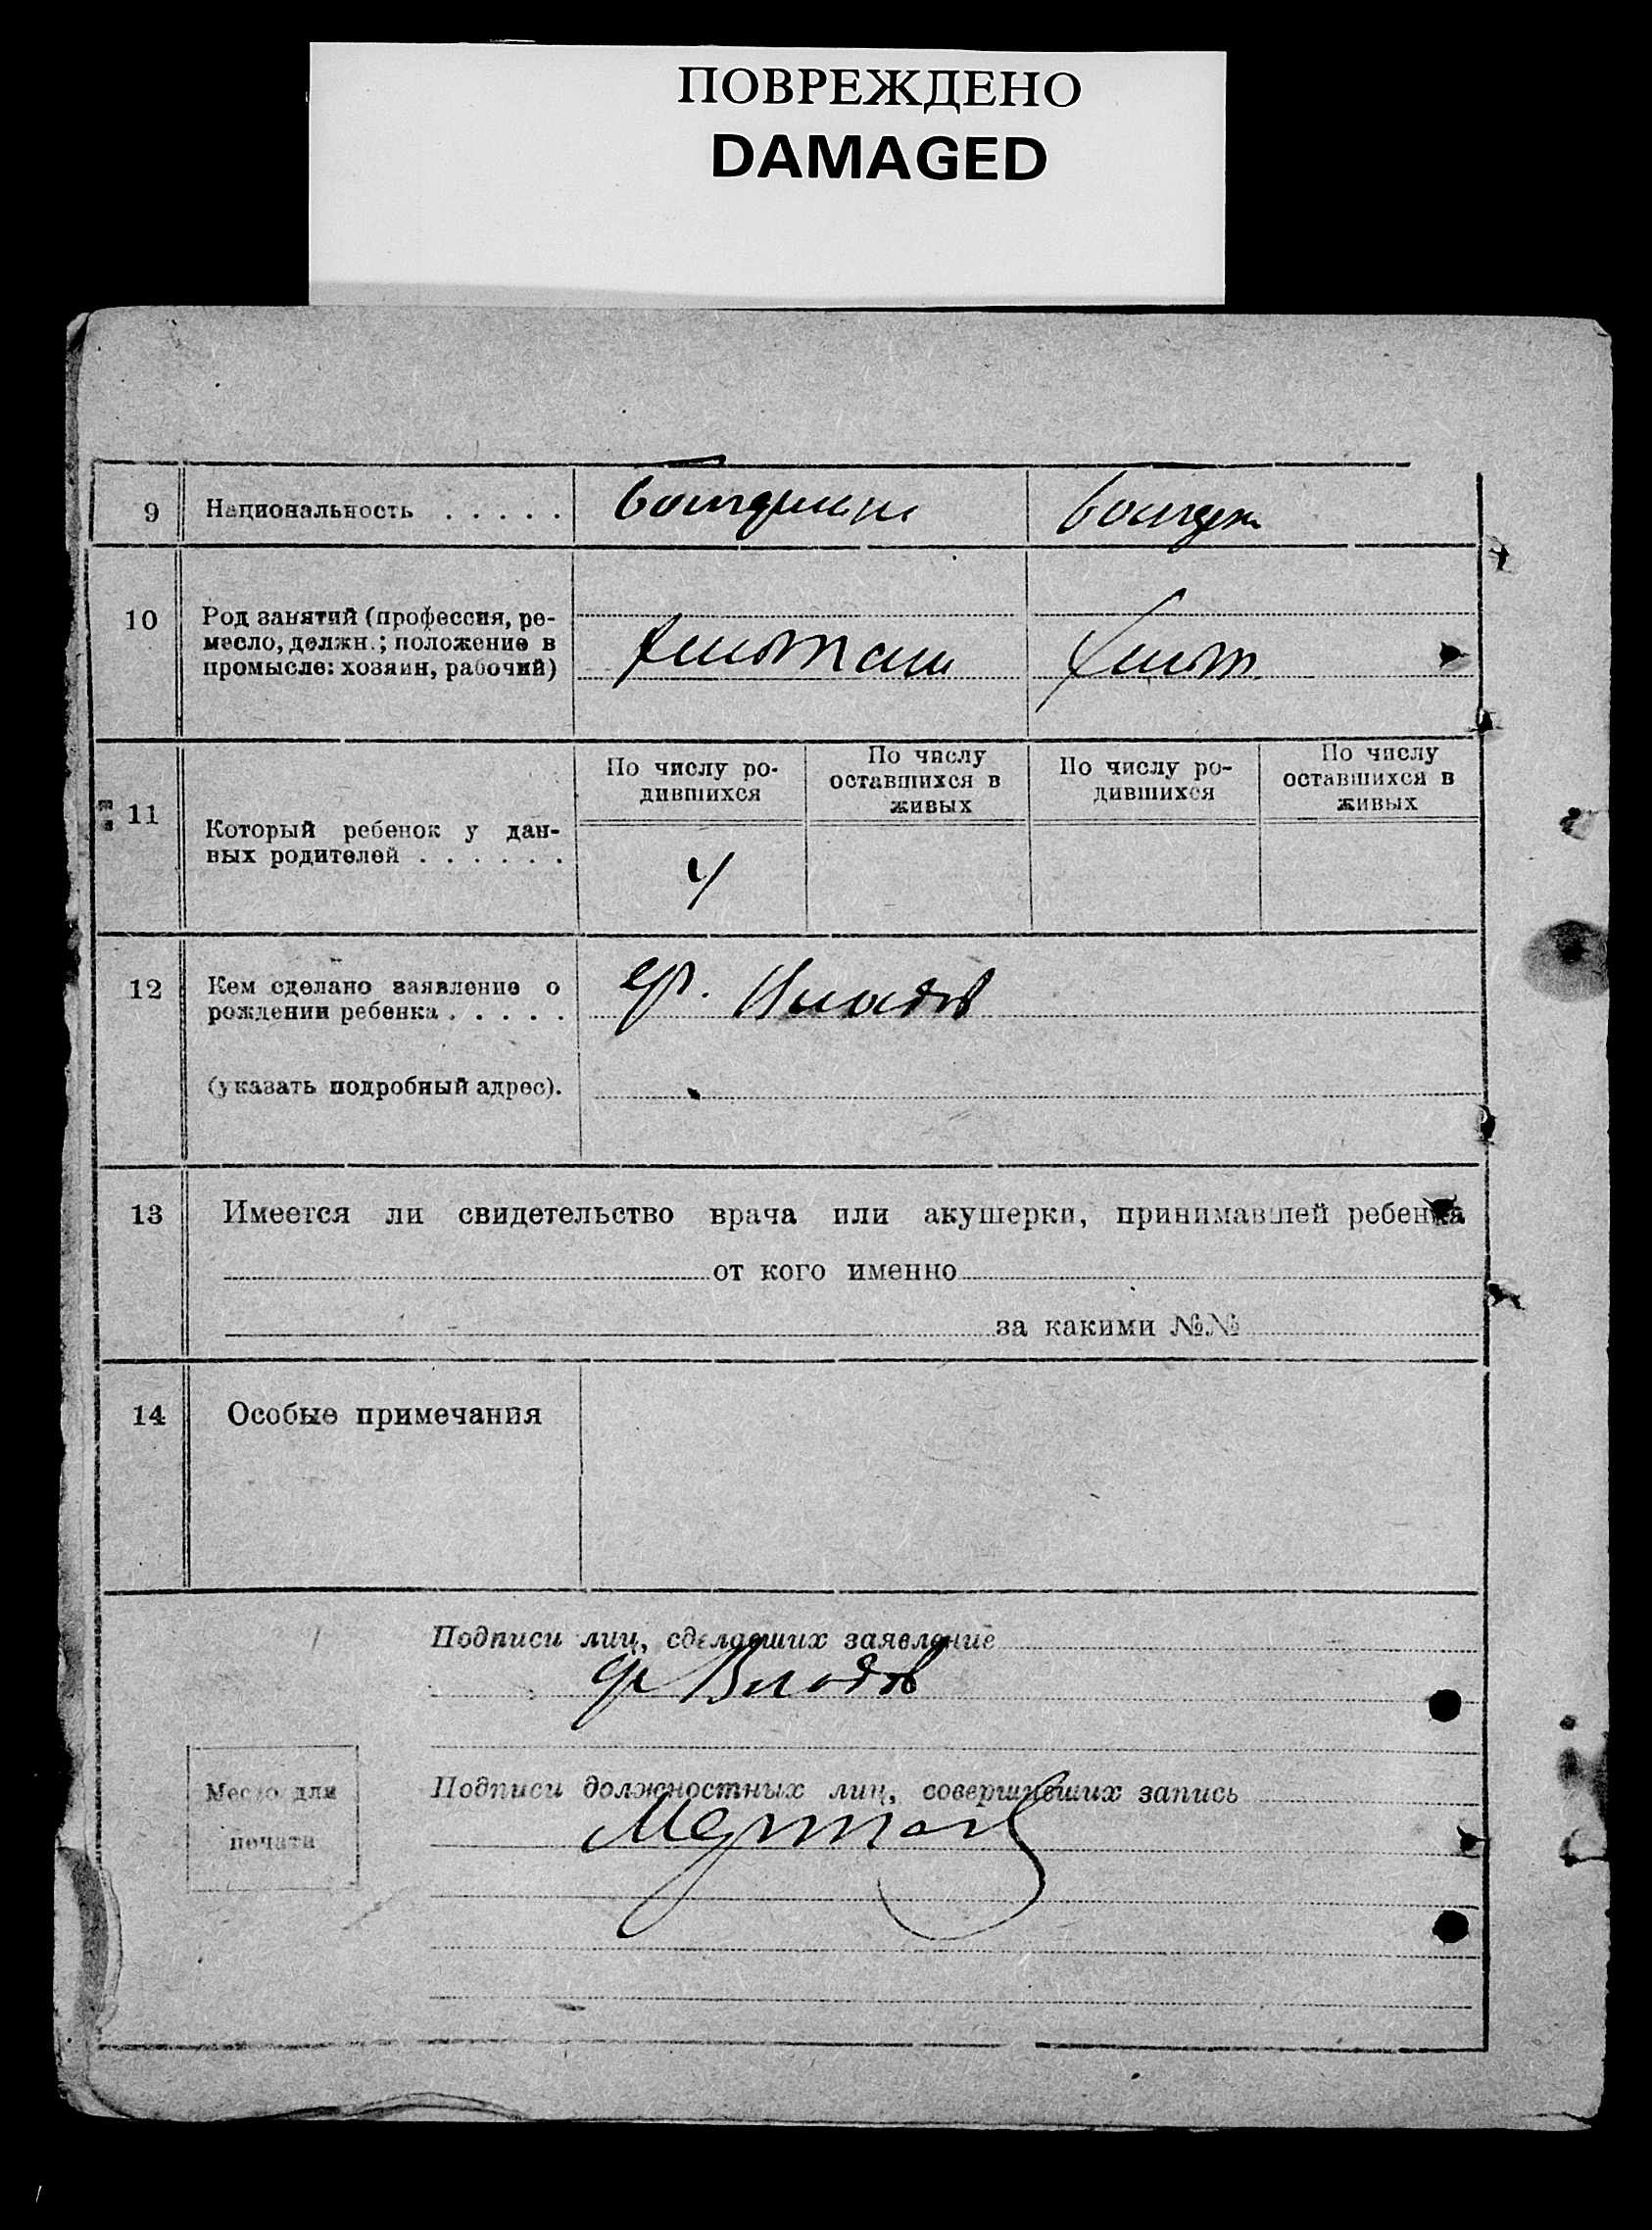 ПОВРЕЖДЕНО
DAMAGED
9 Национальность . . . . .
10 Род занятий (профессия, ре-
месло, должн.; положение в
промысле: хозяин, рабочий)
По числу ро-
дившихся
По числу
оставшихся в
живых
По числу ро-
дившихся
По числу
оставшихся в
живых
11 Который ребенок у дан-
ных родителей . . . . . .
4
12 Кем сделано заявление о
рождении ребенка . . . . .
гр.
(указать подробный адрес).
13 Имеется ли свидетельство врача или акушерки, принимавшей ребенка
от кого именно
за какими №№
14 Особые примечания
Подписи лиц, сделавших заявление
Место для
печати
Подписи должностных лиц, совершивших запись